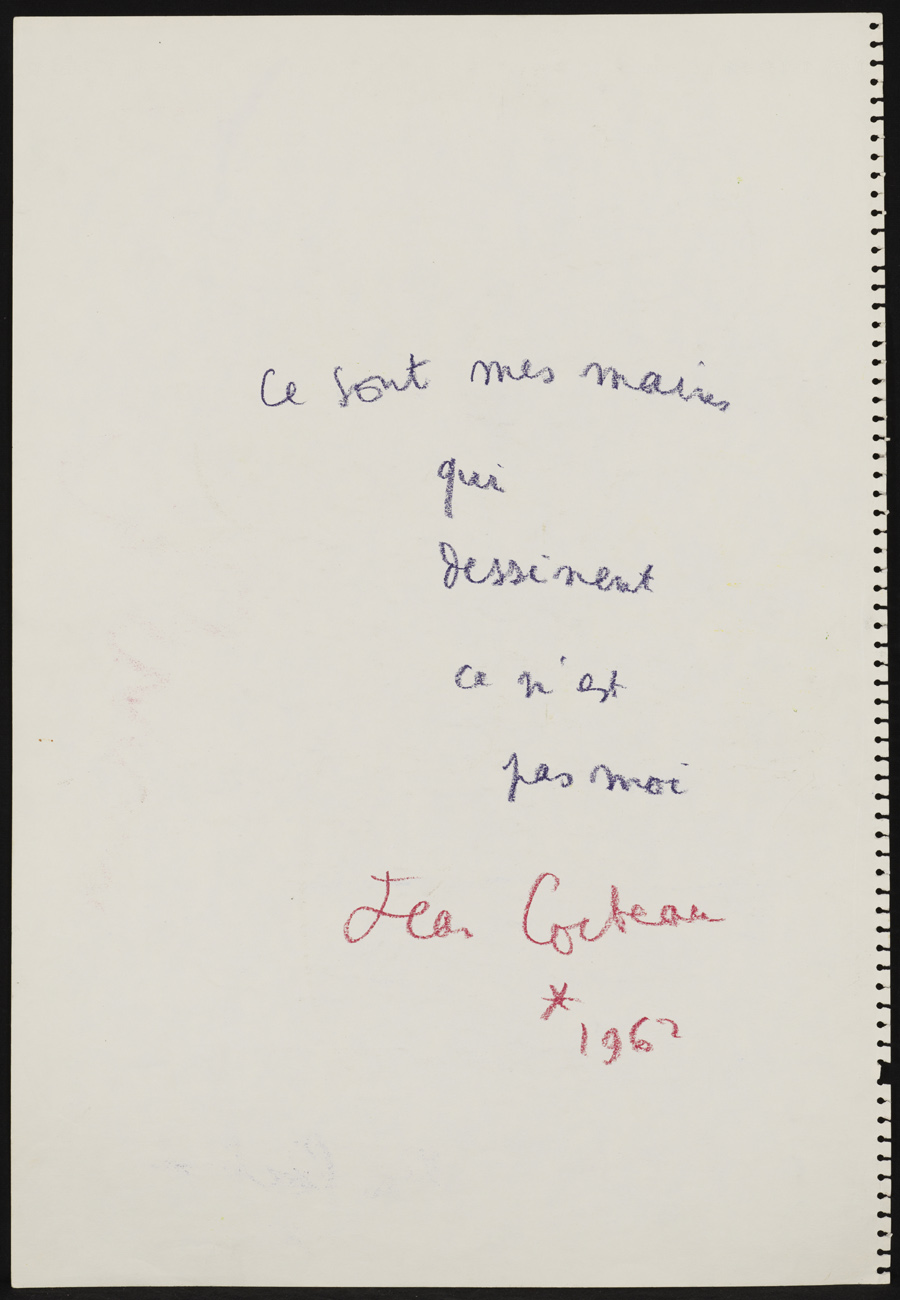 Ce sont mes mains
qui
dessinent
ce n'est
pas moi
Jean Cocteau
*
1962